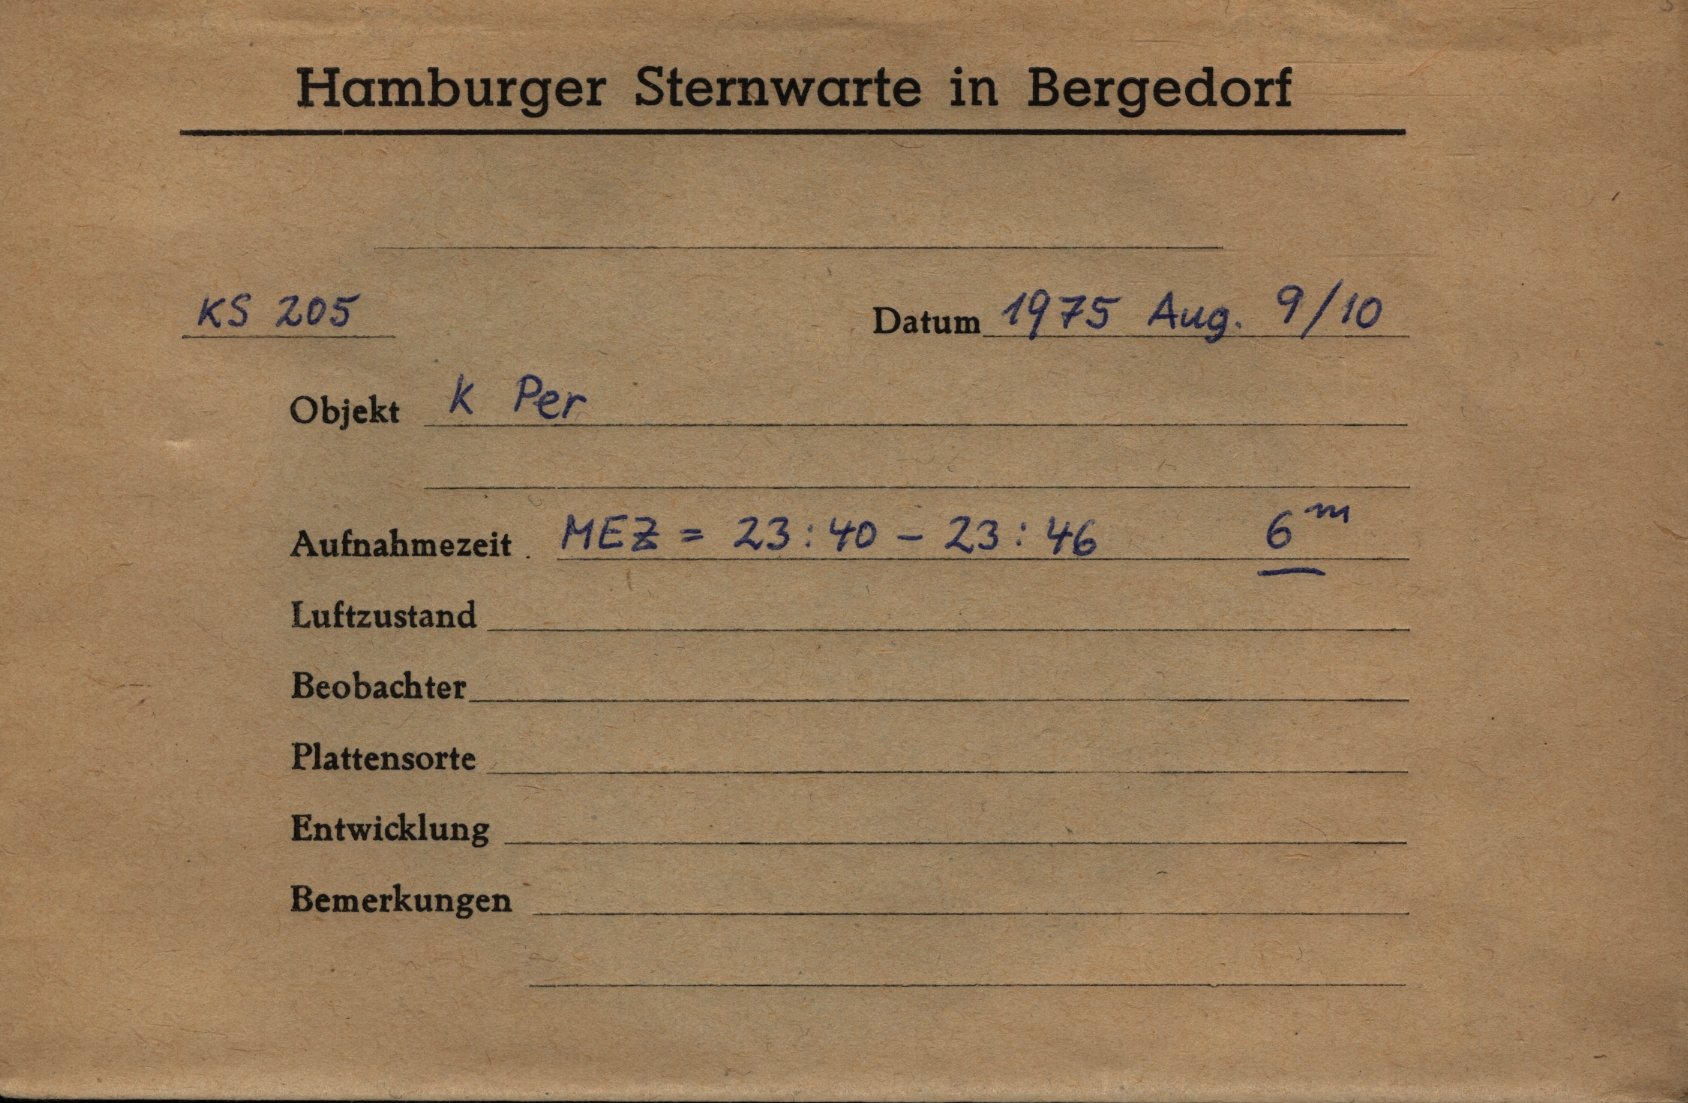 Hamburger Sternwarte in Bergedorf
KS 205 Datum 1975 Aug. 9/10
Objekt κ Per
Aufnahmezeit MEZ = 23:40 – 23:46 6ᵐ
Luftzustand
Beobachter
Plattensorte
Entwicklung
Bemerkungen